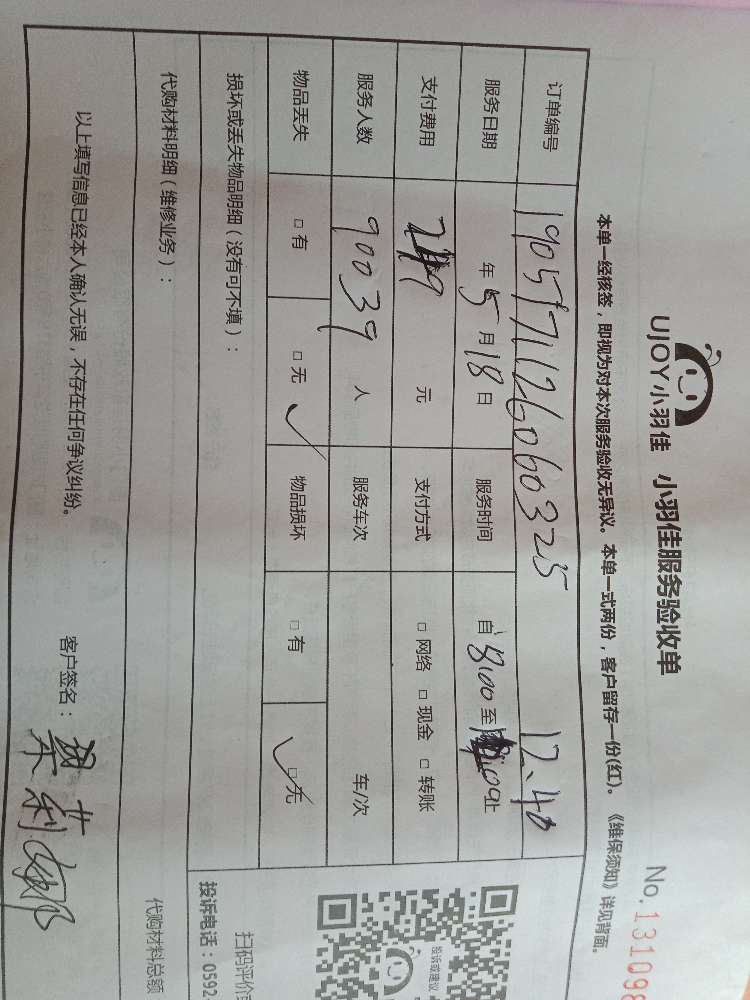 UJOY小羽佳 小羽佳服务验收单
No. 131098
本单一经核签，即视为对本次服务验收无异议。本单一式两份，客户留存一份(红)。《维保须知》详见背面。
订单编号 1905171126060325
17.40
服务日期 年 5 月 18 日 服务时间 自 8:00 至 止
支付费用 元 支付方式 □ 网络 □ 现金 □ 转账
服务人数 90039 人 服务车次 车/次
物品丢失 □ 有 □ 无 ✓ 物品损坏 □ 有 □ 无 ✓
损坏或丢失物品明细（没有可不填）：
投诉或建议
扫码评价
投诉电话：0592
代购材料明细（维修业务）：
代购材料总额
以上填写信息已经本人确认无误，不存在任何争议纠纷。 客户签名：